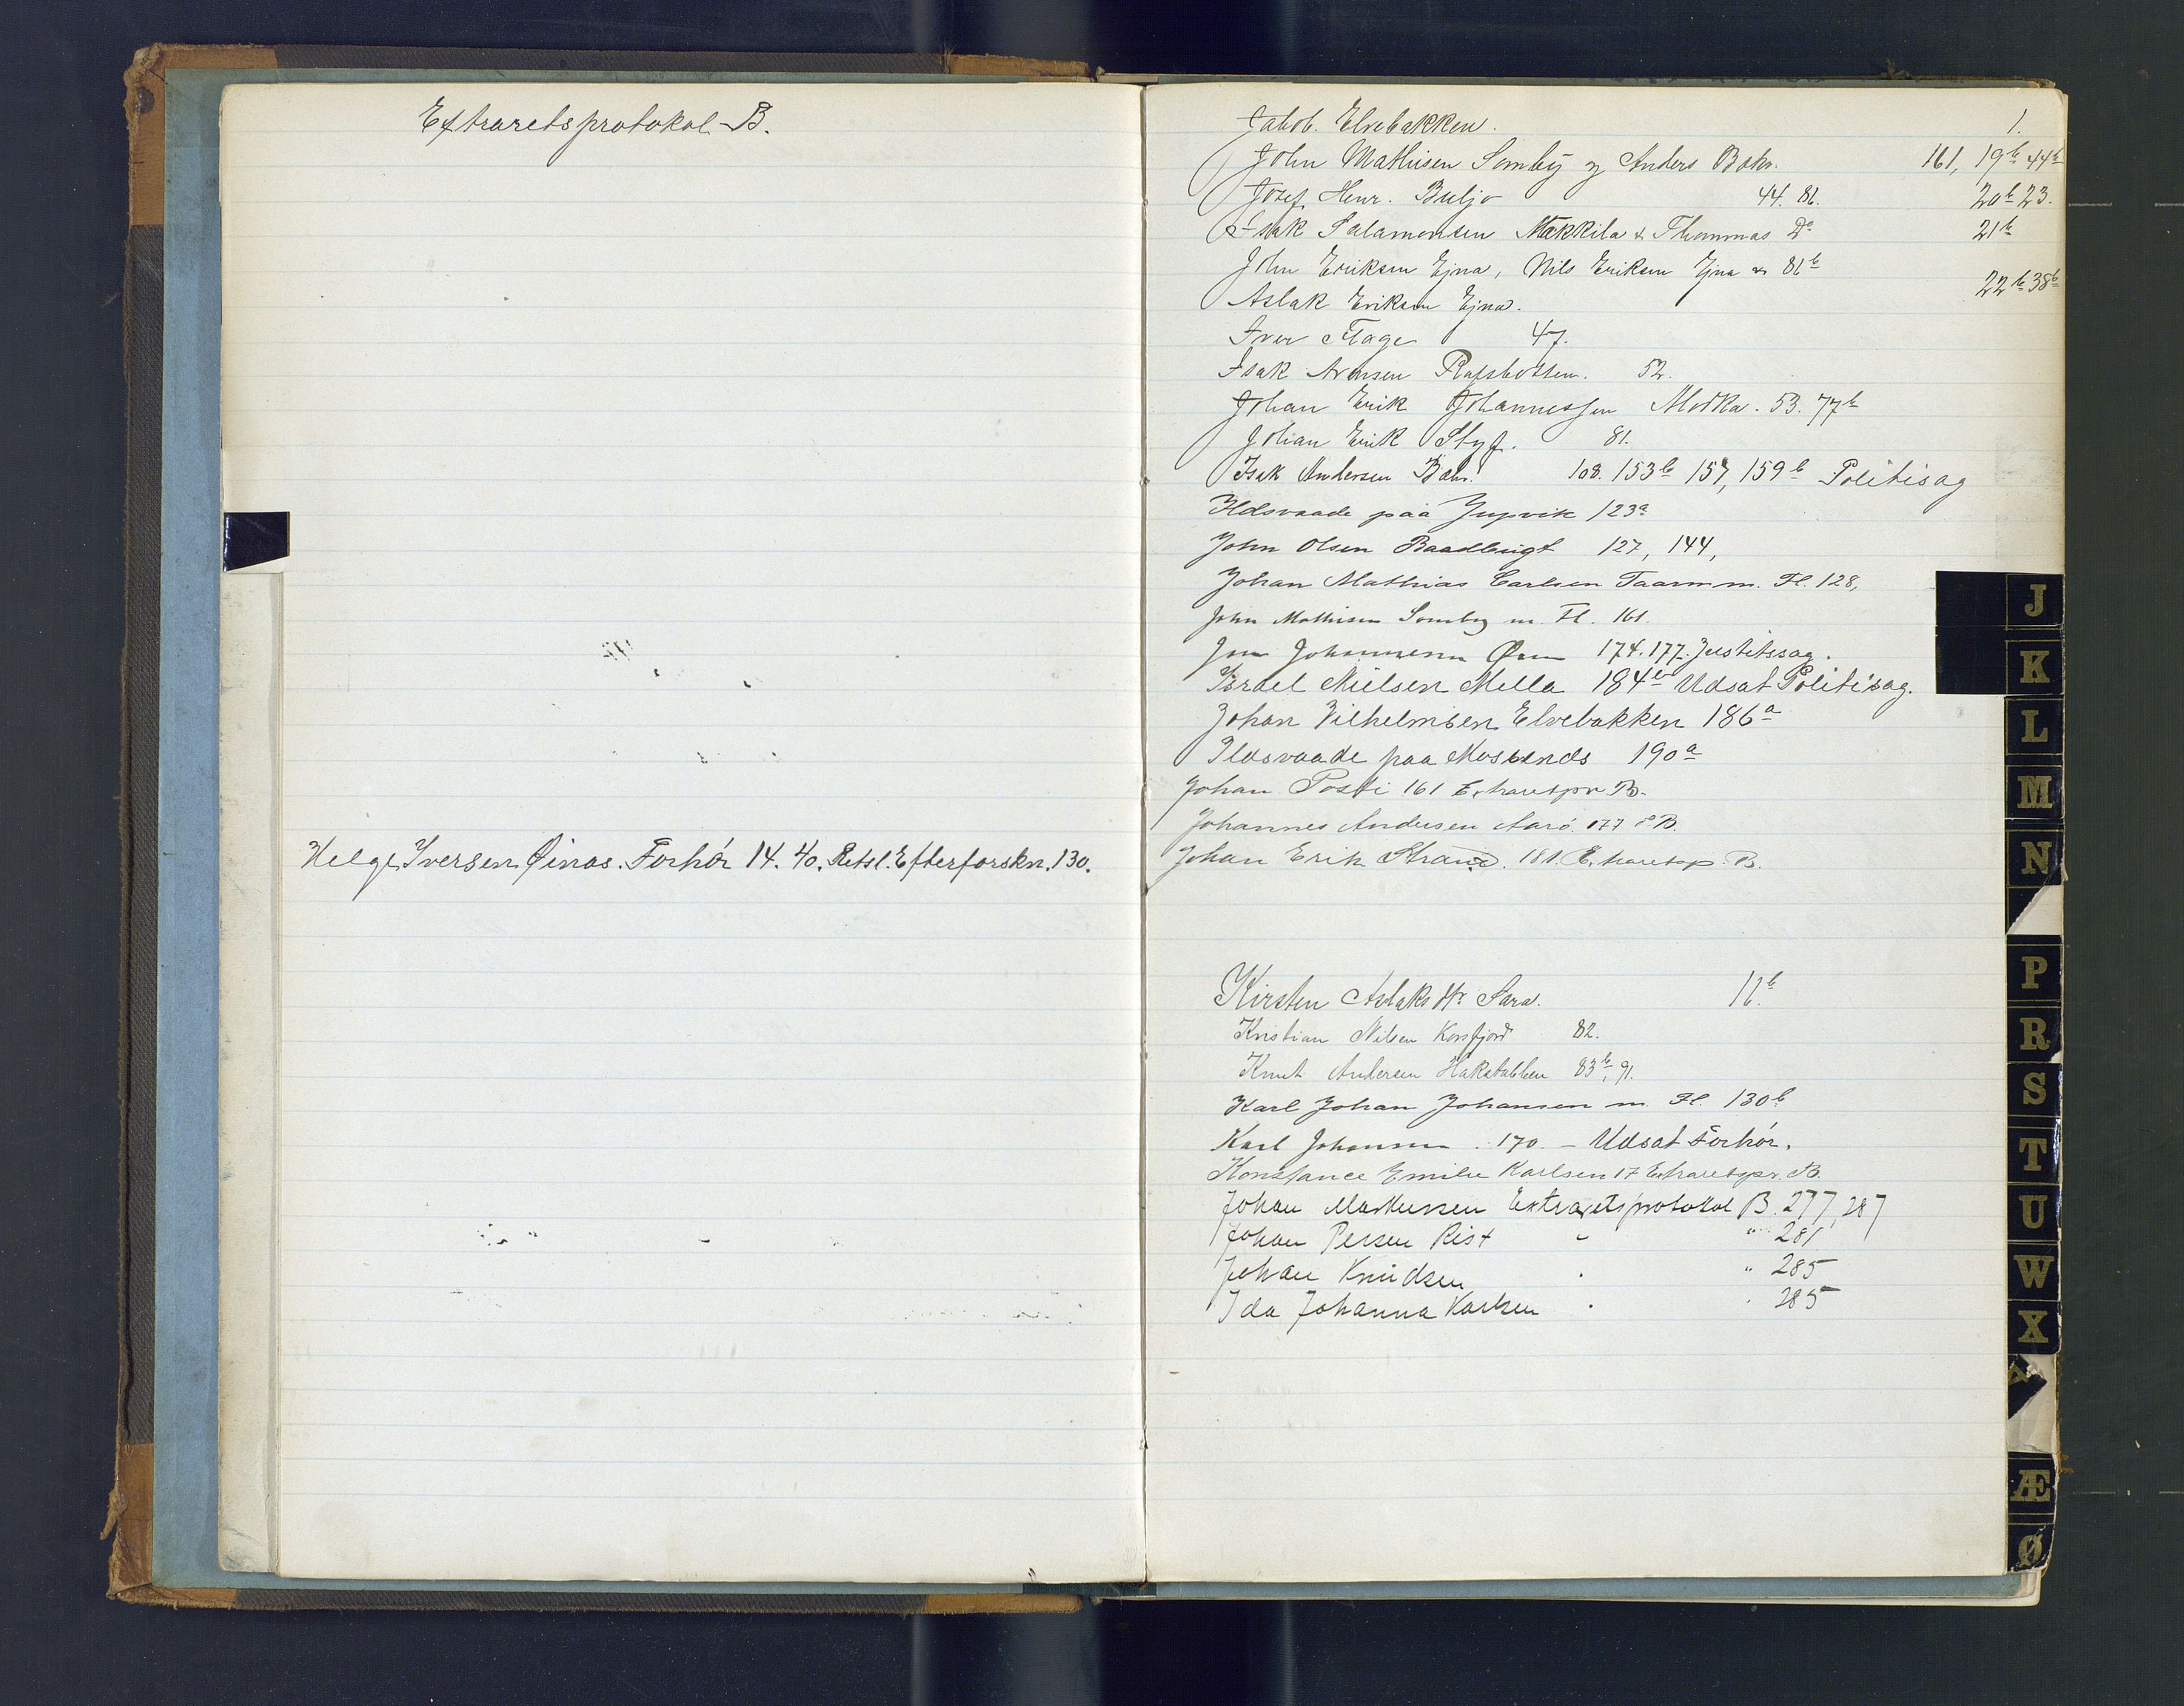 Extraretsprotokol-B.
Helge Iversen Øinas. Forhör 14. 40. Retsl. Efterforskn. 130.
Jakob. Elvebakken. 1.
John Mathisen Somby og Anders Bahr. 161, 19b 44b
Josef Henr. Buljo 44. 81. 20b 23.
Isak Salamonsen Mækkila & Thommas Do 21b
John Eriksen Ejra, Nils Eriksen Ejra & 81b
Aslak Eriksen Ejra. 22b 38b
Iver Flage 47.
Isak Aronsen Rafsbotten. 52.
Johan Erik Johannessen Motka. 53. 77b
Johan Erik Styf. 81.
Isak Andersen Bahr. 108. 153b 157, 159b Politisag
Ildsvaade paa Jupvik 123a
John Olsen Baadbugt 127, 144,
Johan Mathias Carlsen Taarn m. Fl. 128,
John Mathisen Somby m. Fl. 161.
174. 177. Justitssag.
Israel Nielsen Mella 184b Udsat Politisag.
Johan Vilhelmsen Elvebakken 186a
Ildsvaade paa Mosenes 190a
Johan Posti 161 Extraretspr B.
Johannes Andersen Aarö. 177 do B.
Johan Erik Strand. 181. Extraretsp. B.
Kirsten Aslaksdtr Sara. 16b
Kristian Nilsen Korsfjord 82.
Knut Andersen Hakstabben 83b, 91.
Karl Johan Johansen m. Fl. 130b
Karl Johansen. 170. - Udsat Forhör.
Konstance Emilie Karlsen 17 Extraretspr. B.
Johan Mathiesen Extraretsprotokol B. 277, 287
Johan Persen Rist - " 281
Johan Knudsen . " 285
Ida Johanna Karlsen . . 285
J
K
L
M
N
P
R
S
T
U
W
X
Æ
Ø